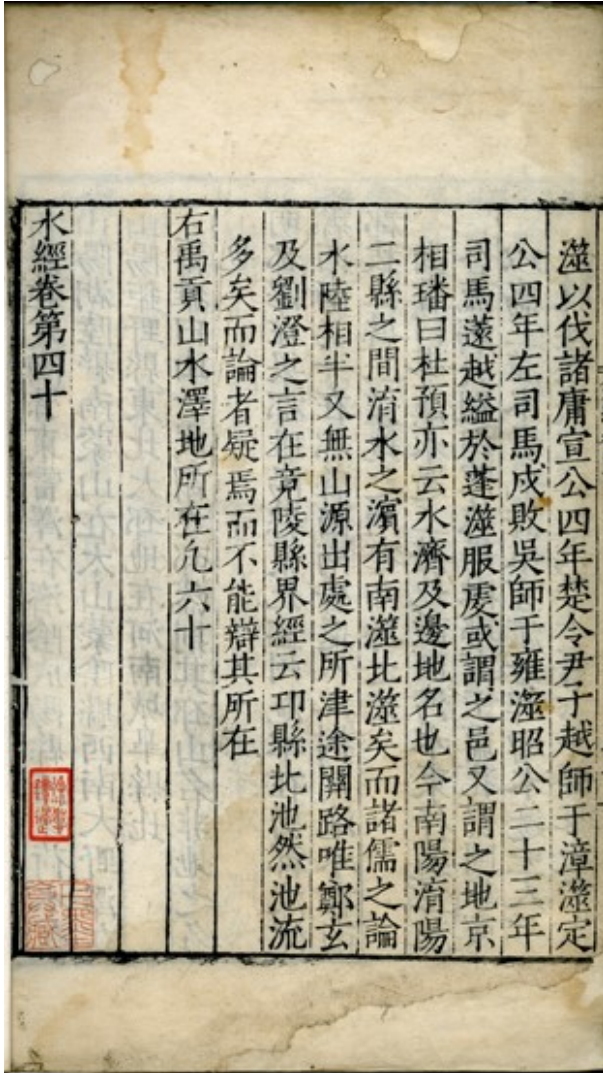 澨以伐諸庸宣公四年楚令尹子越師于漳澨定
公四年左司馬戍敗吳師于雍澨昭公二十三年
司馬薳越縊於薳澨服虔或謂之邑又謂之地京
相璠曰杜預亦云水濟及邊地名也今南陽淯陽
二縣之間淯水之濱有南澨北澨矣而諸儒之論
水陸相半又無山源出處之所津途關路唯鄭玄
及劉澄之言在竟陵縣界經云邔縣北池然池流
多矣而論者疑焉而不能辯其所在
右禹貢山水澤地所在凡六十
水經卷第四十